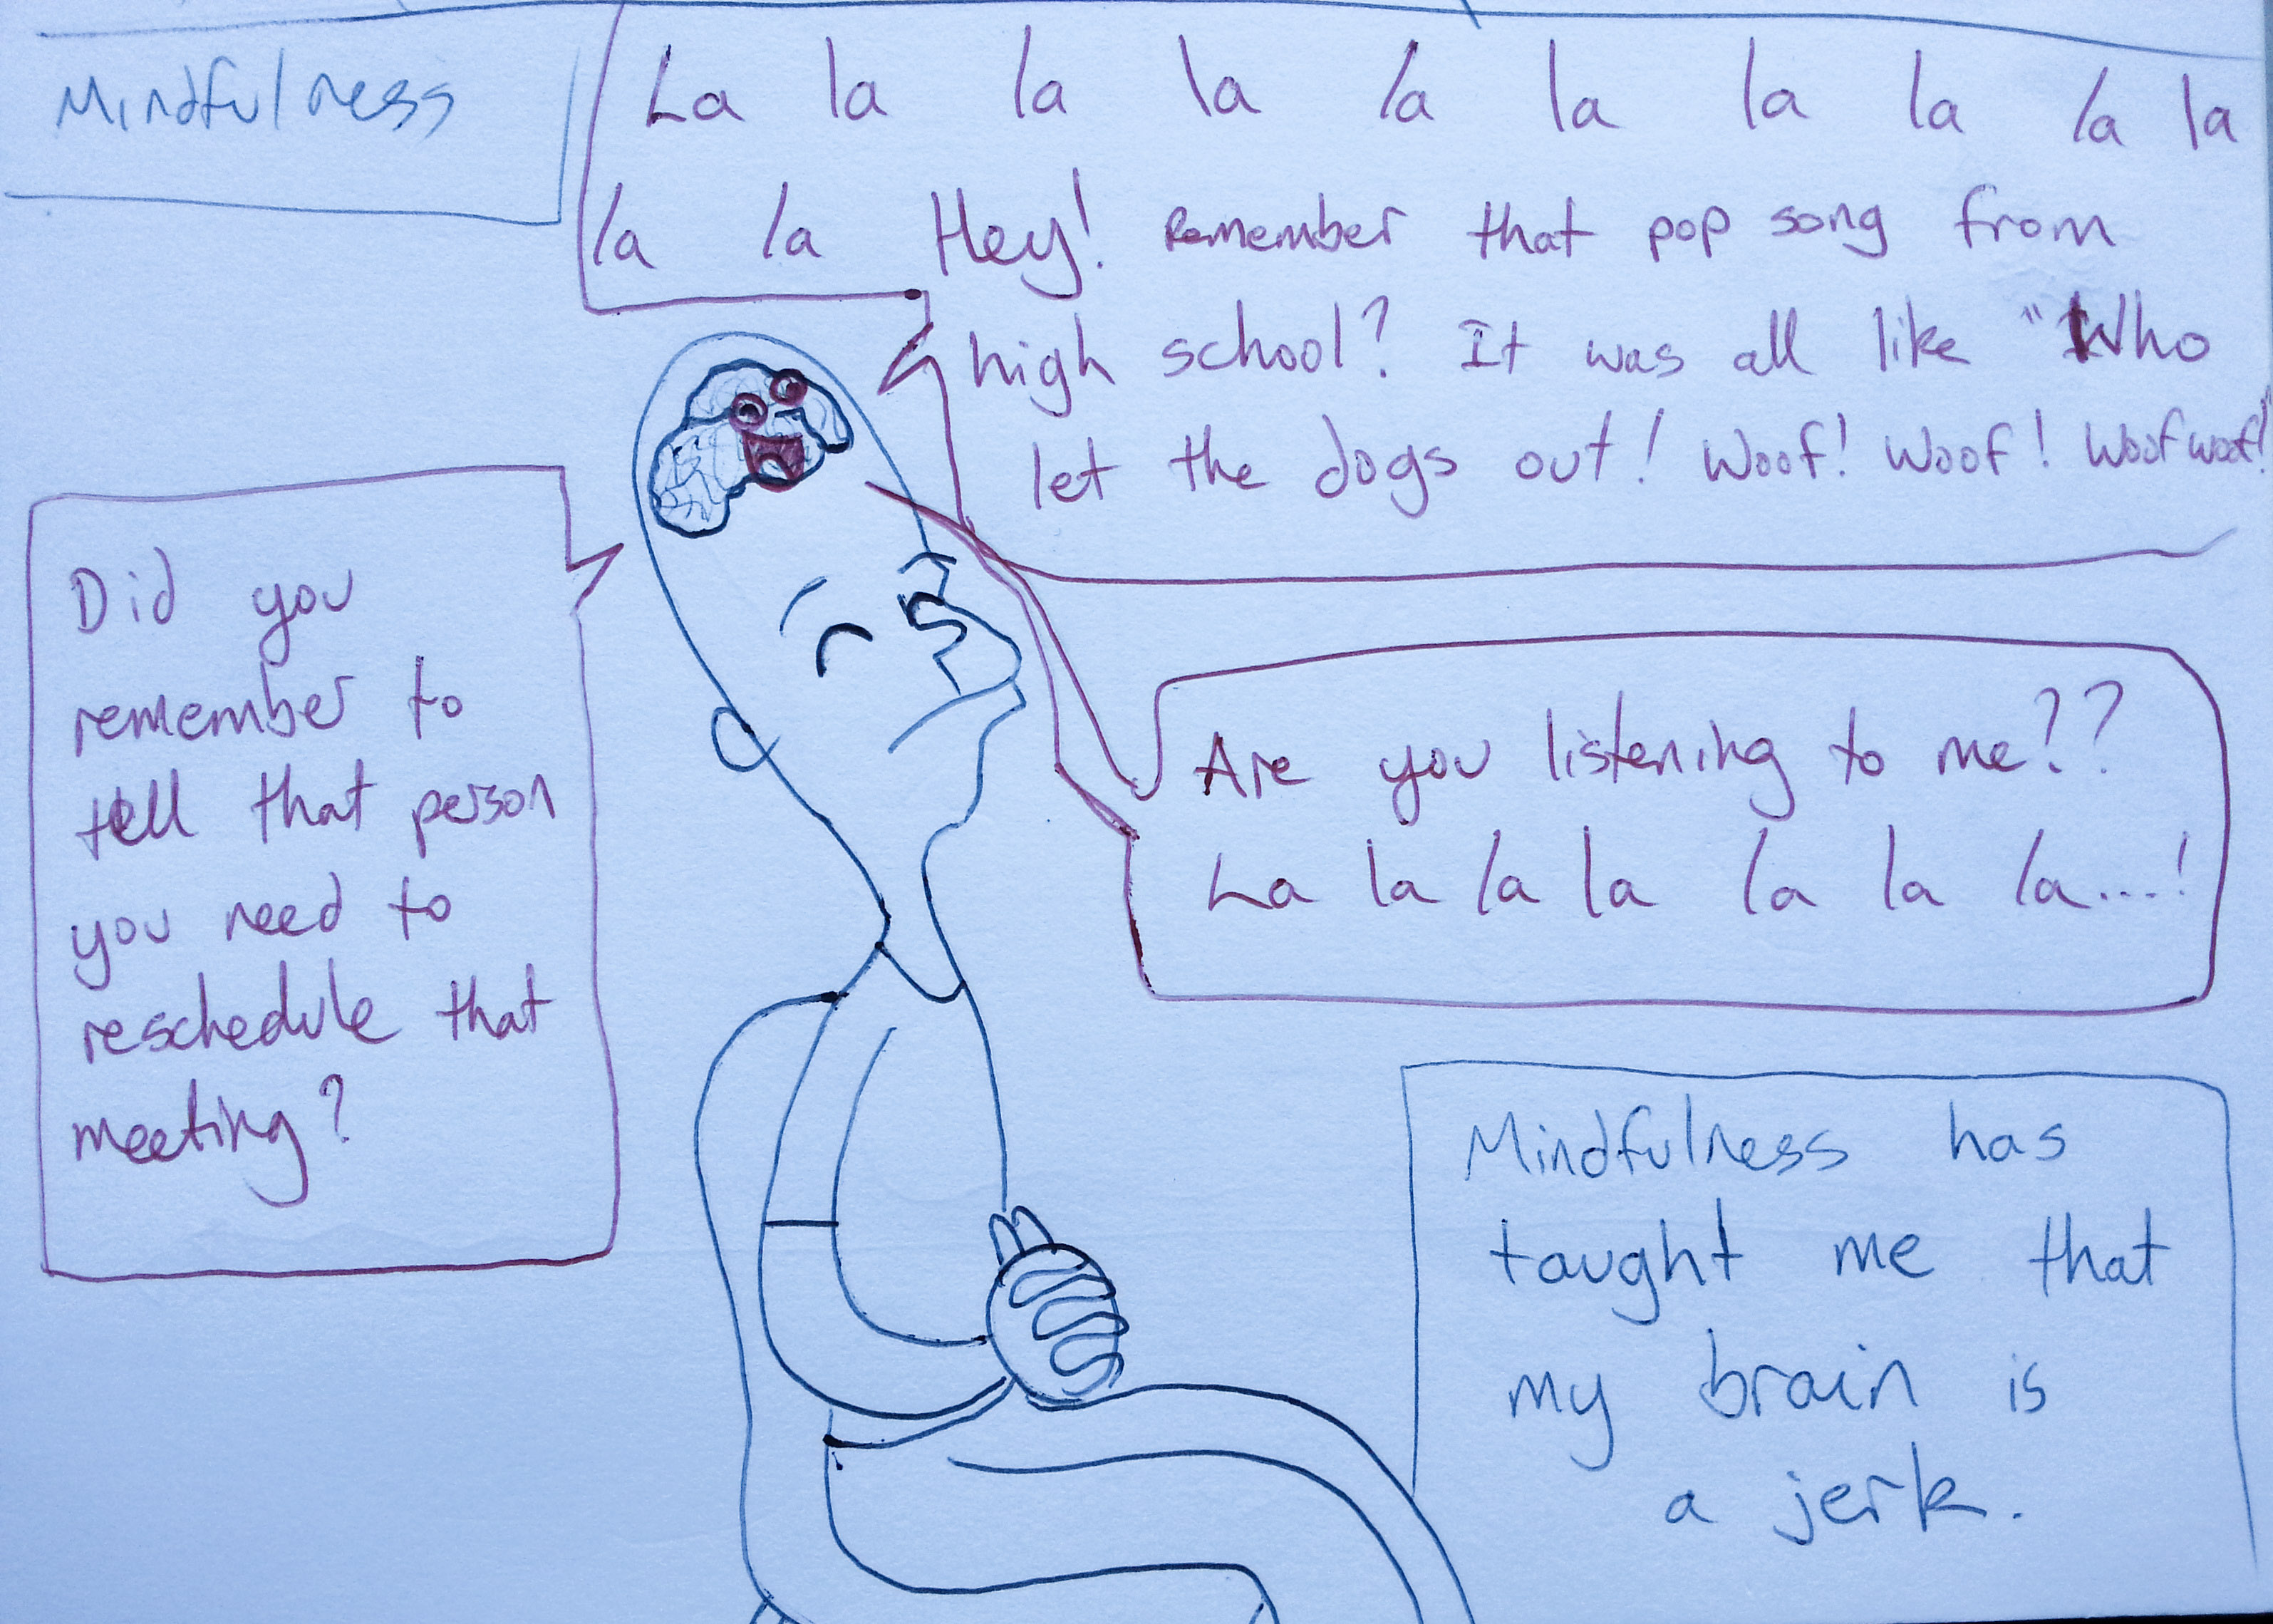 Mindfulness
La la la la la la la la la la
la la Hey! Remember that pop song from
high school? It was all like "Who
let the dogs out! Woof! Woof! Woof woof!"
Did you
remember to
tell that person
you need to
reschedule that
meeting?
Are you listening to me??
La la la la la la la....!
Mindfulness has
taught me that
my brain is
a jerk.